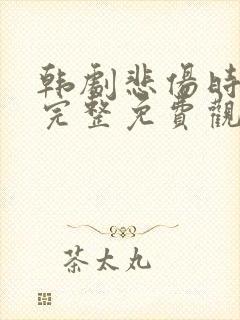 韩劇悲傷時
完整免費觀
茶太丸